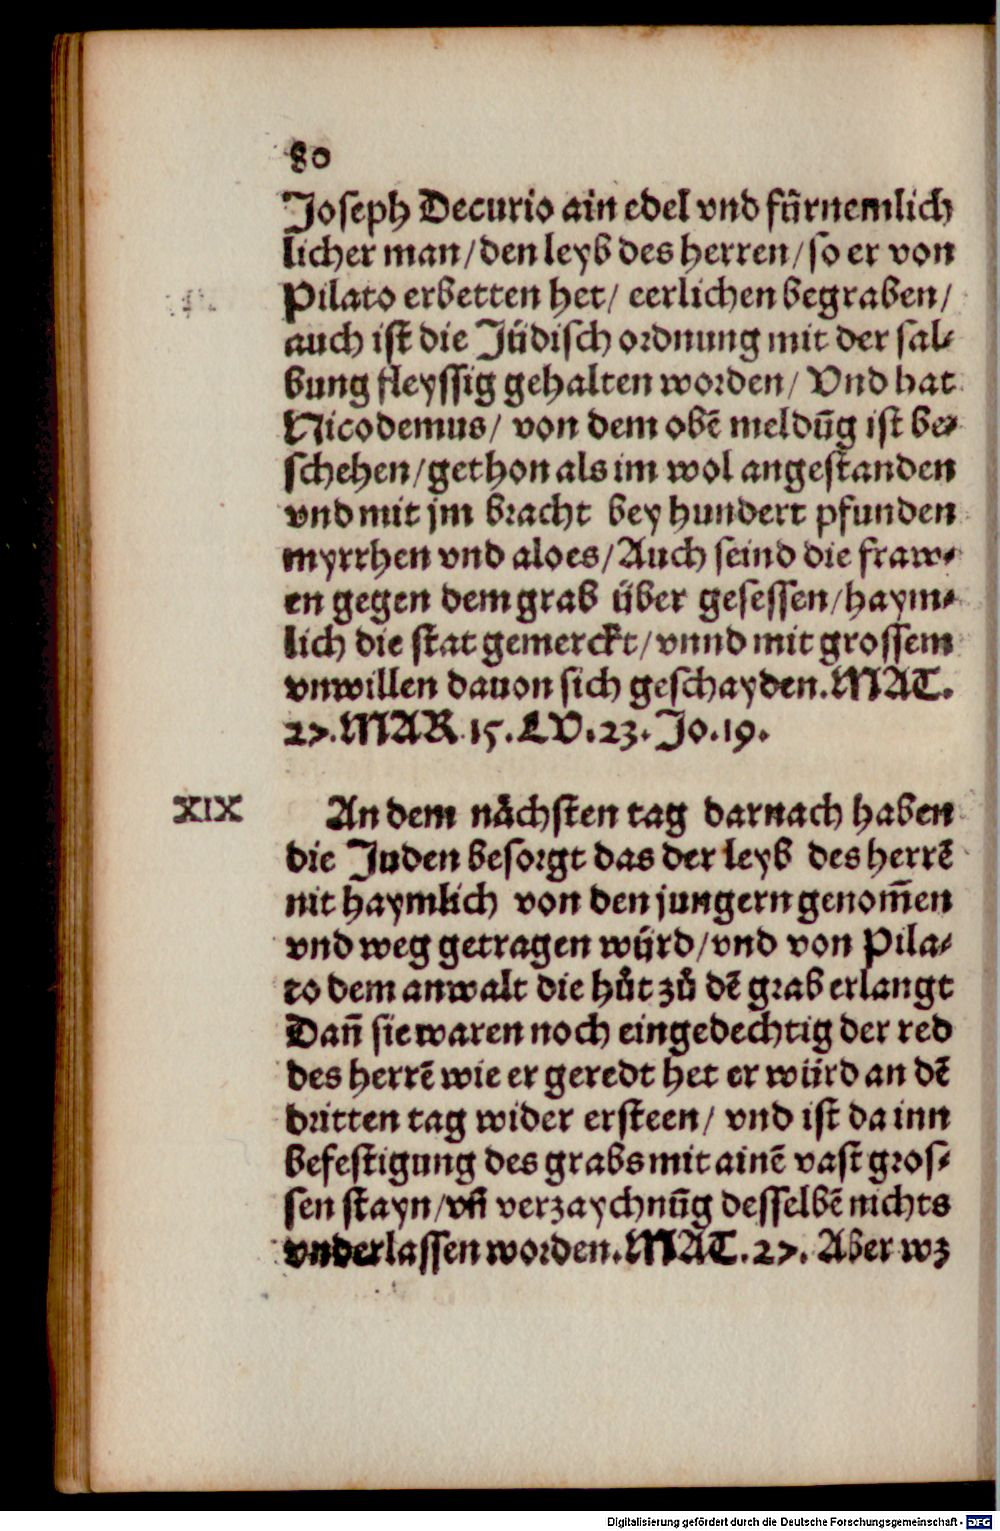 80
Joseph Decurio ain edel vnd fürnemlich
licher man/den leyb des herren/so er von
Pilato erbetten het/ eerlichen begraben/
auch ist die Jüdisch ordnung mit der sal⸗
bung fleyssig gehalten worden/ Vnd hat
Nicodemus/ von dem obē meldūg ist be⸗
schehen/gethon als im wol angestanden
vnd mit jm bracht bey hundert pfunden
myrrhen vnd aloes/Auch seind die fraw⸗
en gegen dem grab über gesessen/haym⸗
lich die stat gemerckt/vnnd mit grossem
vnwillen dauon sich geschayden.MAT.
27.MAR 15.LV.23.Jo.19.
XIX An dem nächsten tag darnach haben
die Juden besorgt das der leyb des herrē
nit haymlich von den jungern genom̄en
vnd weg getragen würd/vnd von Pila⸗
to dem anwalt die hůt zů dē grab erlangt
Dan̄ sie waren noch eingedechtig der red
des herrē wie er geredt het er würd an dē
dritten tag wider ersteen/ vnd ist da inn
befestigung des grabs mit ainē vast gros⸗
sen stayn/vn̄ verzaychnūg desselbē nichts
vnderlassen worden.MAT.27. Aber wz
Digitalisierung gefördert durch die Deutsche Forschungsgemeinschaft - DFG